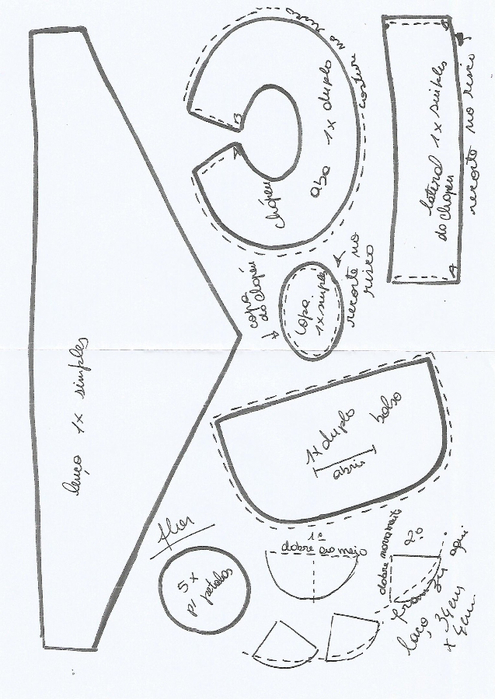 lenço 1x simples
costure no risco
chapéu
aba 1x duplo
lateral 1x simples
do chapéu
recorte no risco
copa
do chapéu
copa
1x simples
recorte no
risco
1x duplo
abrir
bolso
flor
5x
p/ petalas
1º
dobre ao meio
dobre novamente
2º
franzir aqui
laço, 34cm
x 4cm